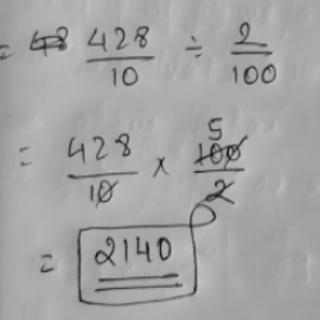 = 428/10 ÷ 2/100
= 428/10 × 5 100/2
= 2140